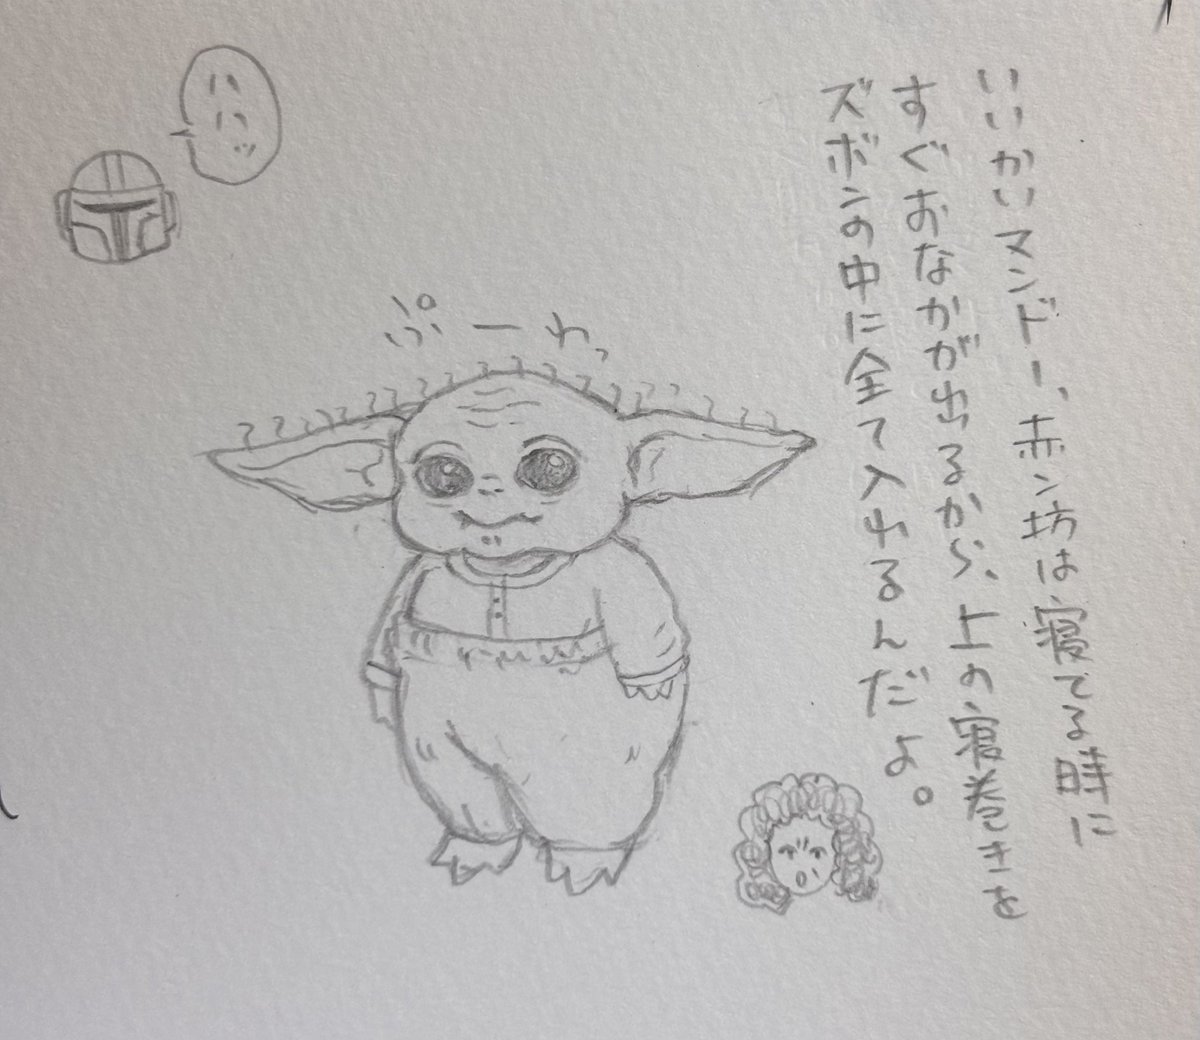 いいかいマンドー、赤ン坊は寝てる時に
すぐおなかが出るから、上の寝巻きを
ズボンの中に全て入れるんだよ。
ハハッ
ぷーわっ